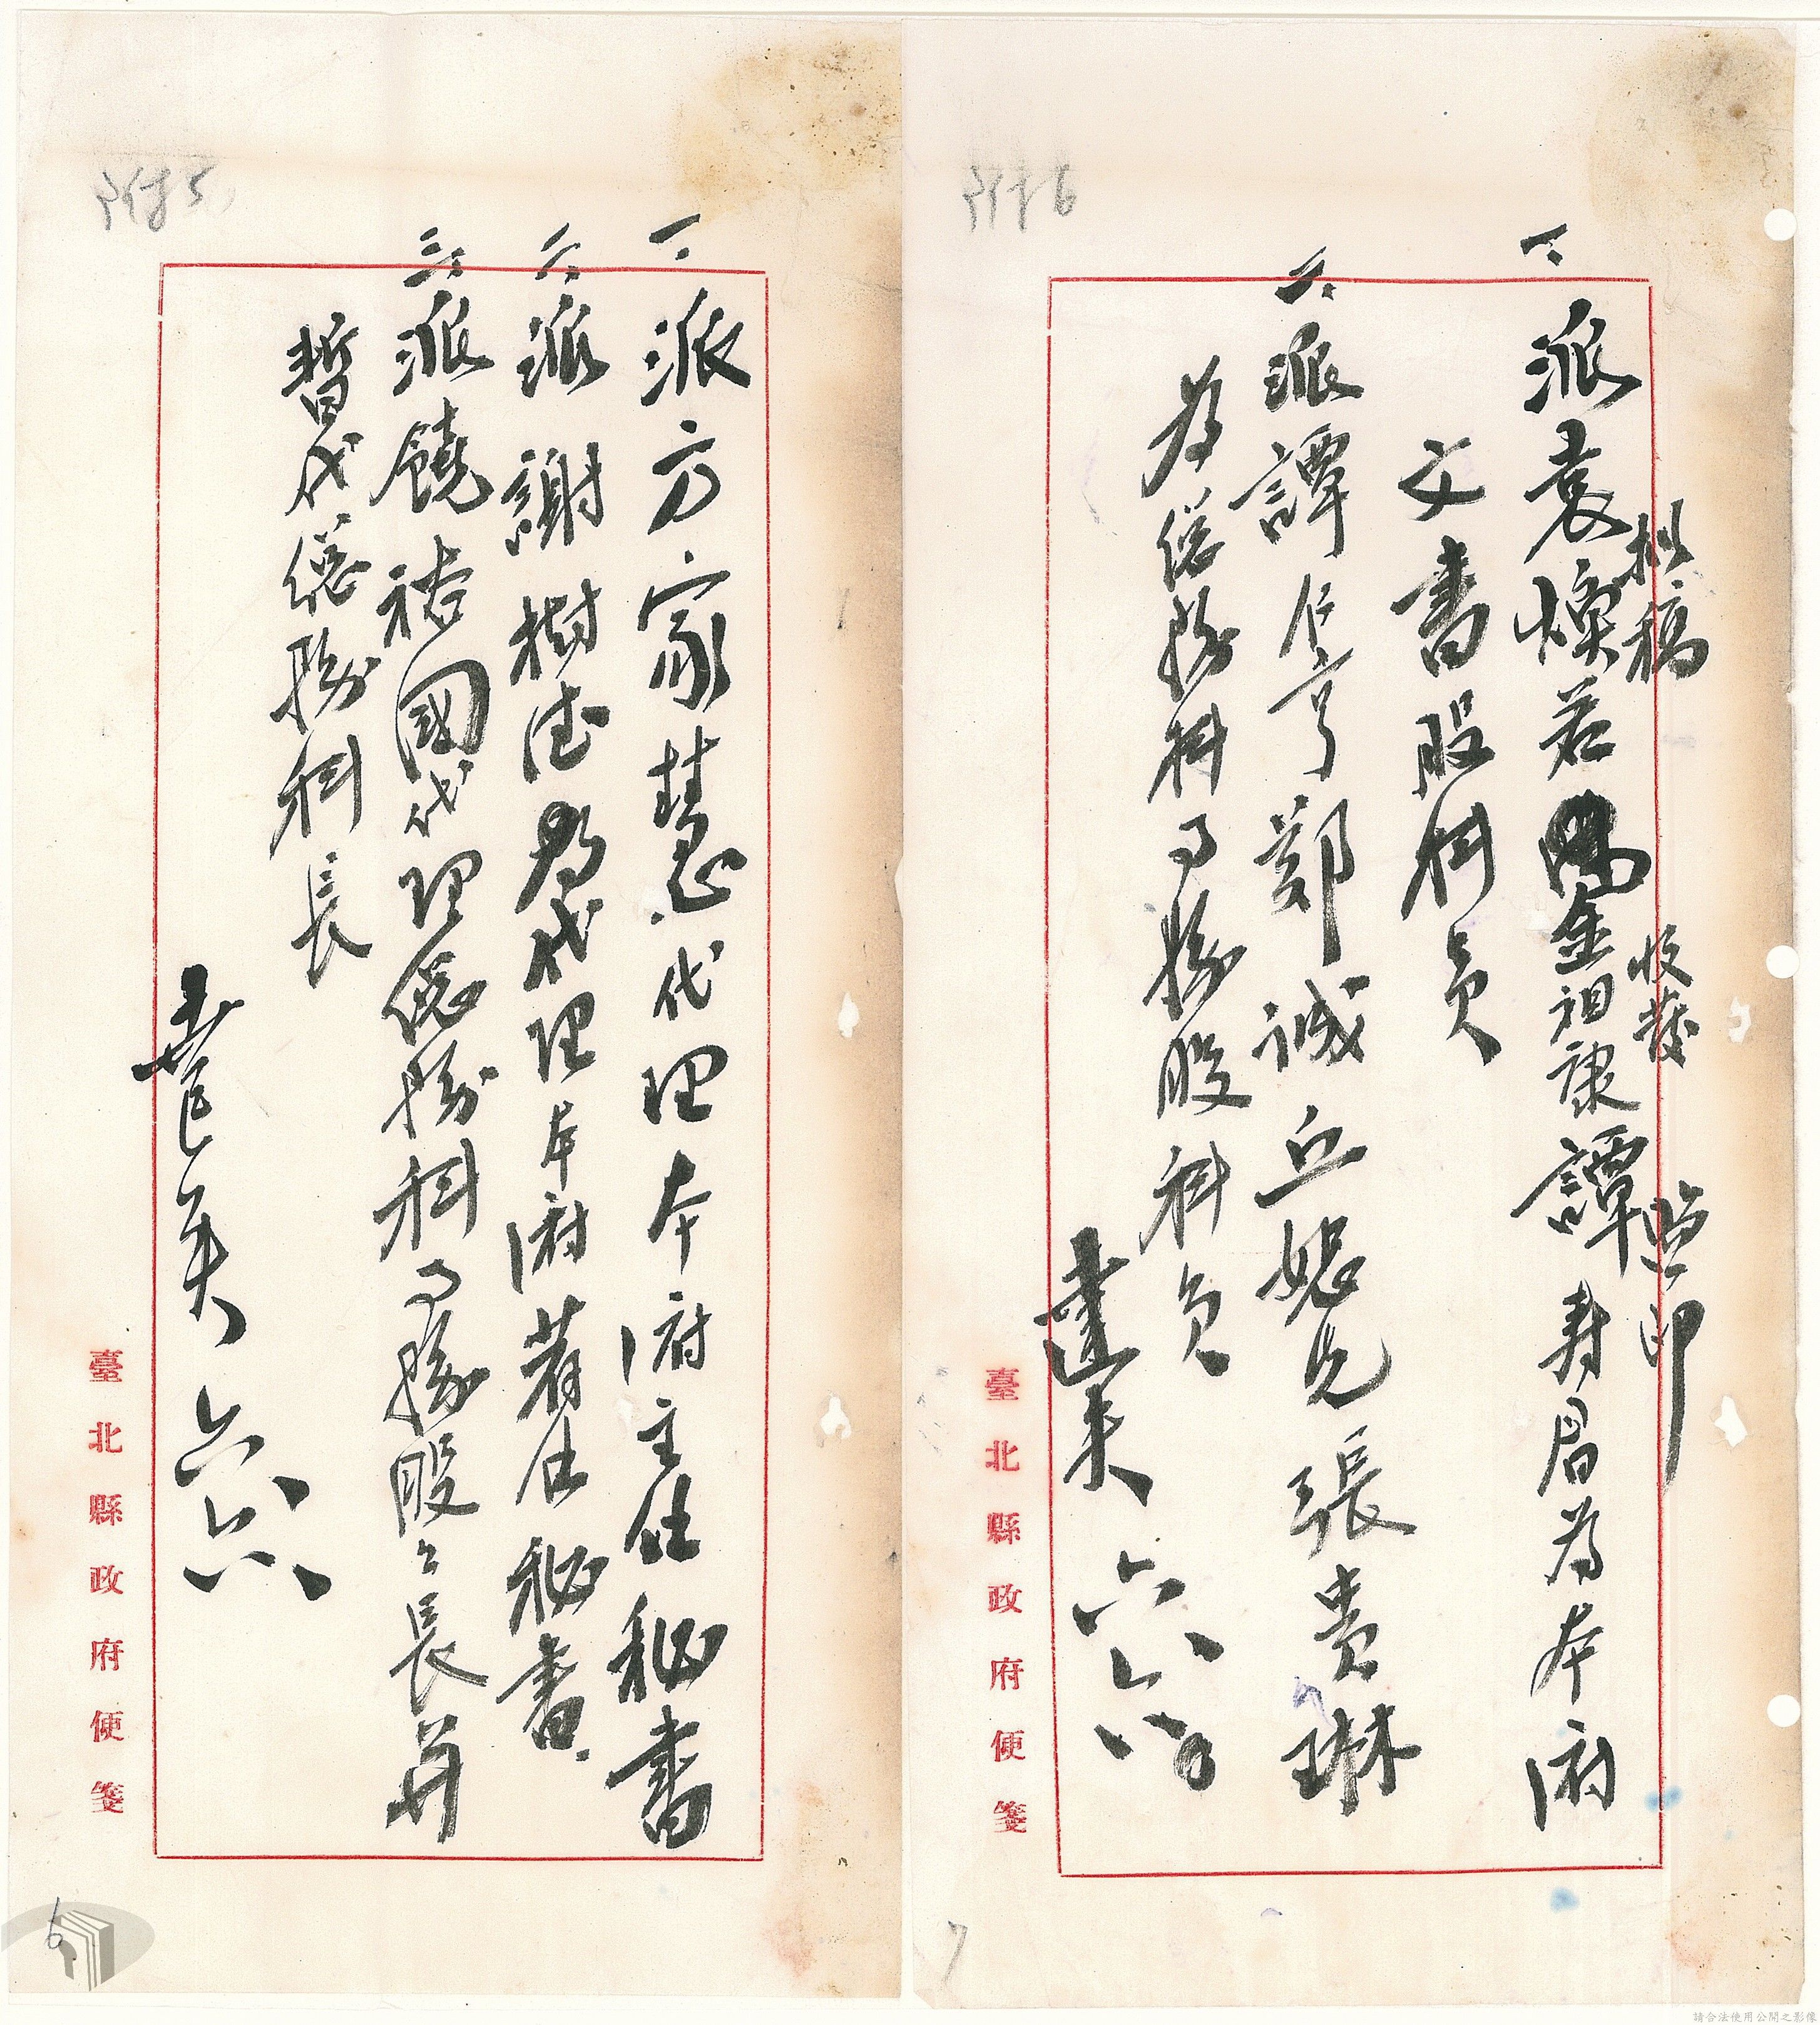 附6
擬稿
收發
監印
一、派袁煥若
金祖康譚壽眉為本府
文書股科員
二、派譚占亨鄭誠丘媳兒張貴琳
為總務科事務股科員
六六
臺北縣政府便箋
7
附5
一、派方家慧代理本府主任秘書
二、派謝樹德為代理本府薦任秘書
三、派饒祜國代理總務科事務股々長并
暫代總務科長
六六
臺北縣政府便箋
6
請合法使用公開之影像